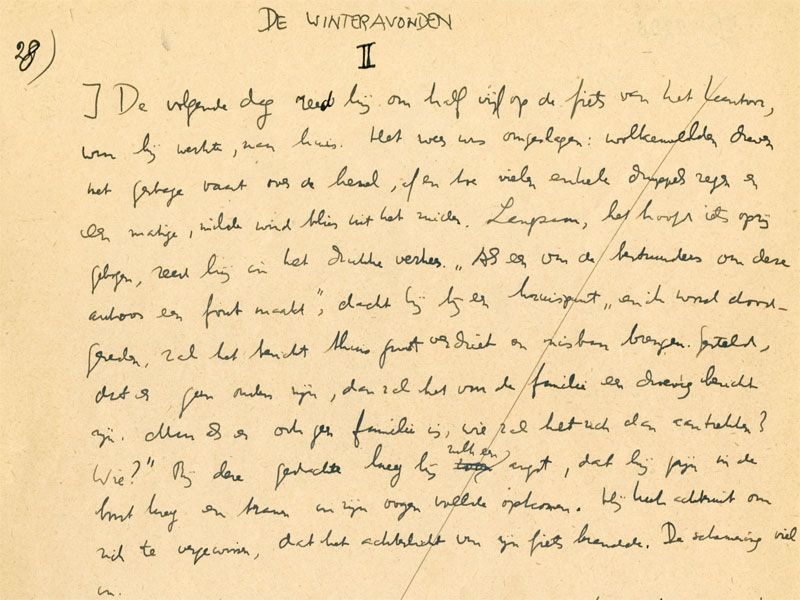 DE WINTERAVONDEN
28)
II
] De volgende dag reed hij om half vijf op de fiets van het kantoor,
waar hij werkte, naar huis. Het weer was omgeslagen: wolkenvelden dreven
met gestage vaart over de hemel, af en toe vielen enkele druppels regen en
een matige, milde wind blies uit het zuiden. Langzaam, het hoofd iets opzij
gebogen, reed hij in het drukke verkeer. „Als een van de bestuurders van deze
autoos een fout maakt", dacht hij bij een kruispunt „en ik word dood-
gereden, zal het bericht thuis groot verdriet en misbaar brengen. Gesteld,
dat er geen ouders zijn, dan zal het van de familie een droevig bericht
zijn. Maar als er ook geen familie is, wie zal het zich dan aantrekken?
Wie?" Bij deze gedachte kreeg hij zulk een angst, dat hij pijn in de
borst kreeg en tranen in zijn oogen voelde opkomen. Hij keek achteruit om
zich te vergewissen, dat het achterlicht van zijn fiets brandde. De schemering viel
in.